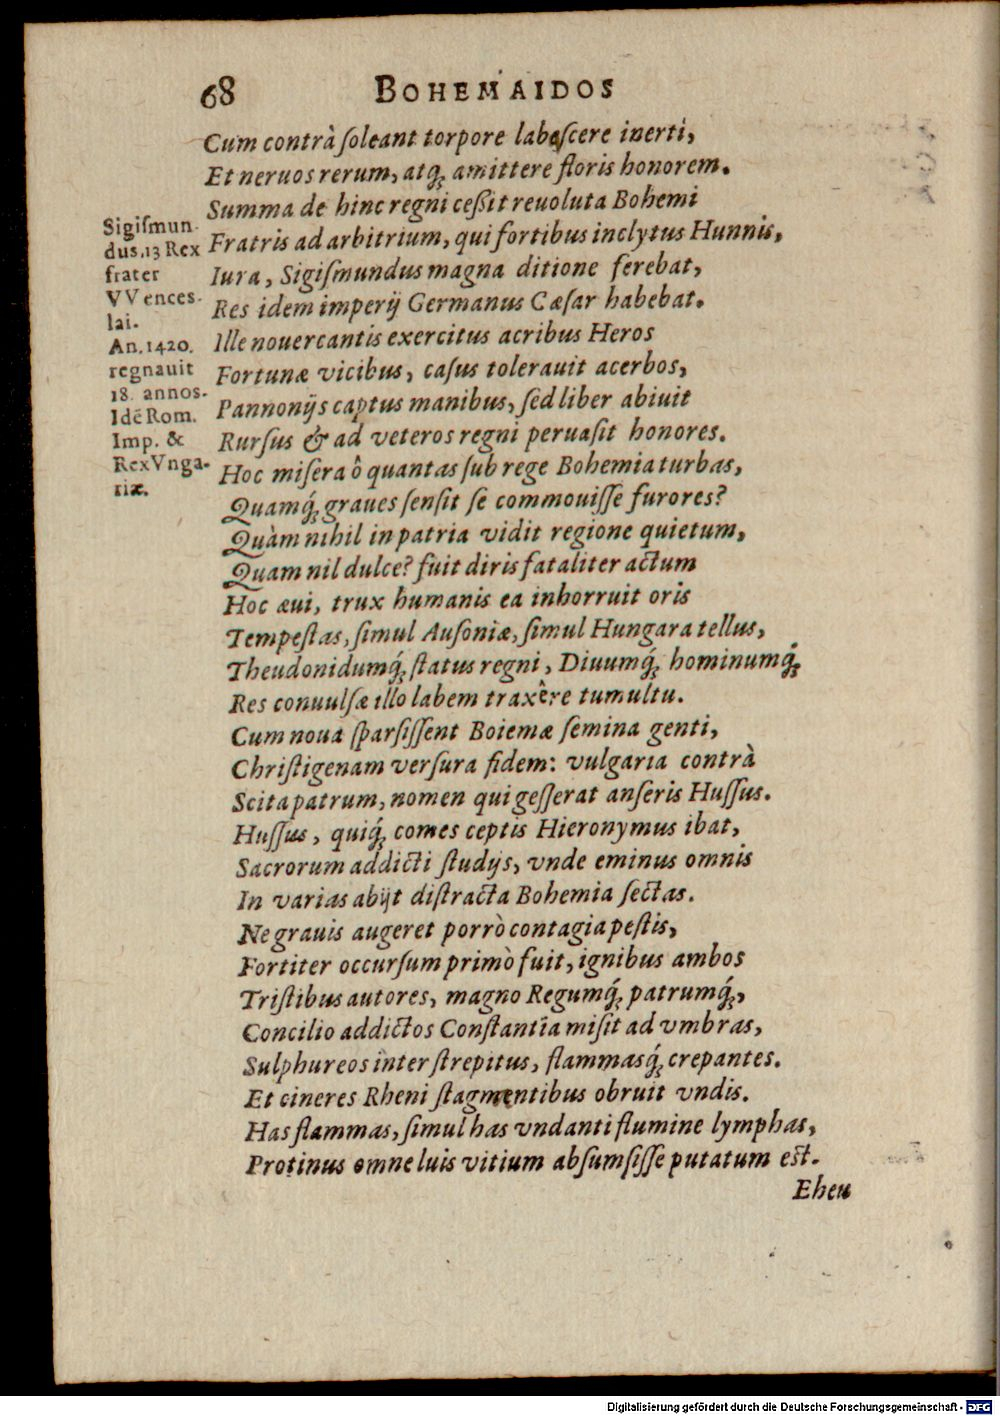 68 BOHEMAIDOS
Cum contrà ſoleant torpore labaſcere inerti,
Et neruos rerum, atq́ꝫ amittere floris honorem.
Summa de hinc regni ceßit reuoluta Bohemi
Fratris ad arbitrium, qui fortibus inclytus Hunnis,
Iura, Sigiſmundus magna ditione ferebat,
Res idem imperij Germanus Cæſar habebat.
Ille nouercantis exercitus acribus Heros
Fortunæ vicibus, caſus tolerauit acerbos,
Pannonijs captus manibus, ſed liber abiuit
Rurſus & ad veteros regni peruaſit honores.
Hoc miſera ô quantas ſub rege Bohemia turbas,
Quamq́ꝫ graues ſenſit ſe commouiſſe furores?
Quàm nihil in patria vidit regione quietum,
Quam nil dulce? fuit diris fataliter actum
Hoc æui, trux humanis ea inhorruit oris
Tempeſtas, ſimul Auſoniæ, ſimul Hungara tellus,
Theudonidumq́ꝫ ſtatus regni, Diuumq́ꝫ hominumq́ꝫ
Res conuulſæ illo labem traxêre tumultu.
Cum noua ſparſiſſent Boiemæ ſemina genti,
Chriſtigenam verſura fidem: vulgaria contrà
Scita patrum, nomen qui geſſerat anſeris Huſſus.
Huſſus, quiq́ꝫ comes ceptis Hieronymus ibat,
Sacrorum addicti ſtudijs, vnde eminus omnis
In varias abijt diſtracta Bohemia ſectas.
Ne grauis augeret porrò contagia peſtis,
Fortiter occurſum primò fuit, ignibus ambos
Triſtibus autores, magno Regumq́ꝫ patrumq́ꝫ,
Concilio addictos Conſtantia miſit ad vmbras,
Sulphureos inter ſtrepitus, flammasq́ꝫ crepantes.
Et cineres Rheni ſtagnantibus obruit vndis.
Has flammas, ſimul has vndanti flumine lymphas,
Protinus omne luis vitium abſumſiſſe putatum est.
Eheu
Sigiſmun-
dus.13 Rex
frater
VVences-
lai.
An.1420.
regnauit
18. annos.
Idē Rom.
Imp. &
Rex Vnga-
riæ.
Digitalisierung gefördert durch die Deutsche Forschungsgemeinschaft - DFG